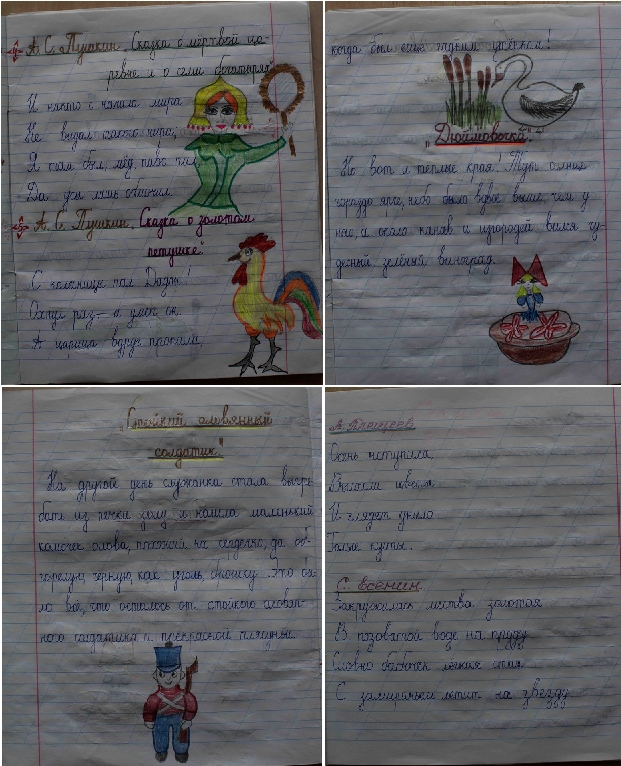 А. С. Пушкин. Сказка о мёртвой ца-
ревне и о семи богатырях
И никто с начала мира
Не видал такого пира;
Я там был, мёд, пиво пил,
Да усы лишь обмочил.
А. С. Пушкин. Сказка о золотом
петушке".
С колесницы пал Дадон!
Охнул раз – и умер он.
А царица вдруг пропала,
когда был ещё гадким утёнком!
„Дюймовочка".
Но вот и тёплые края! Тут солнце
гораздо ярче, небо было вдвое выше, чем у
нас, а около канав и изгородей вился чу-
десный зелёный виноград.
„Стойкий оловянный
солдатик"
На другой день служанка стала выгре-
бать из печки золу и нашла маленький
комочек олова, похожий на сердечко, да об-
горелую, чёрную, как уголь, брошку. Это бы-
ло всё, что осталось от стойкого оловян-
ного солдатика и прекрасной плясуньи.
А. Плещеев
Осень наступила
Высохли цветы
И глядят уныло
Голые кусты.
С. Есенин
Закружилась листва золотая
В розоватой воде на пруду
Словно бабочек лёгкая стая
С замираньем летит на звезду